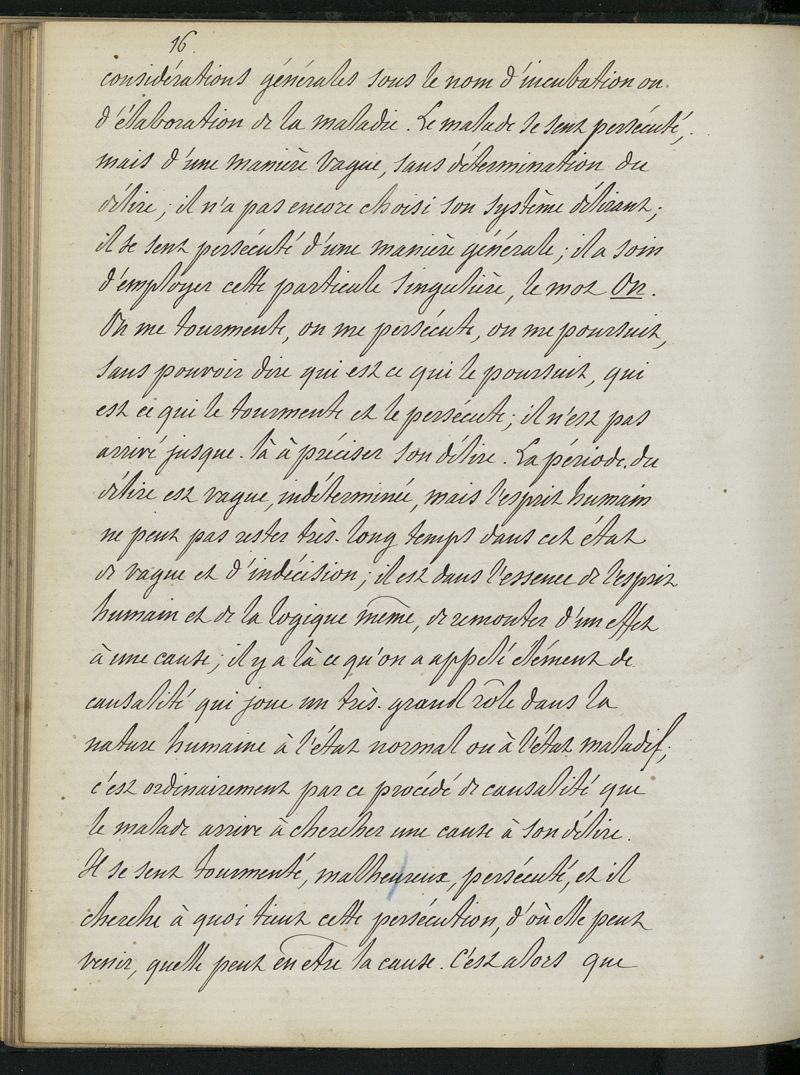 16.
considérations générales sous le nom d'incubation ou
d'élaboration de la maladie. Le malade se sent persécuté,
mais d'une manière vague, sans détermination du
délire; il n'a pas encore choisi son système délirant;
il se sent persécuté d'une manière générale; il a soin
d'employer cette particule singulière, le mot On.
On me tourmente, on me persécute, on me poursuit,
sans pouvoir dire qui est ce qui le poursuit, qui
est ce qui le tourmente et le persécute; il n'est pas
arrivé jusque-là à préciser son délire. La période du
délire est vague, indéterminée, mais l'esprit humain
ne peut pas rester très-long temps dans cet état
de vague et d'indécision; il est dans l'essence de l'esprit
humain et de la logique même, de remonter d'un effet
à une cause; il y a là ce qu'on a appelé élément de
causalité qui joue un très-grand rôle dans la
nature humaine à l'état normal ou à l'état maladif;
c'est ordinairement par ce procédé de causalité que
le malade arrive à chercher une cause à son délire.
Il se sent tourmenté, malheureux, persécuté, et il
cherche à quoi tient cette persécution, d'où elle peut
venir, quelle peut en être la cause. C'est alors que